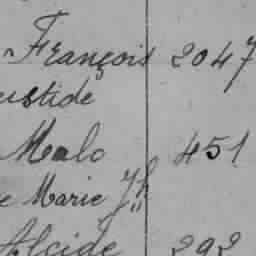 François 2047
ustide
Malo 451
e Marie Jh
Alcide 292